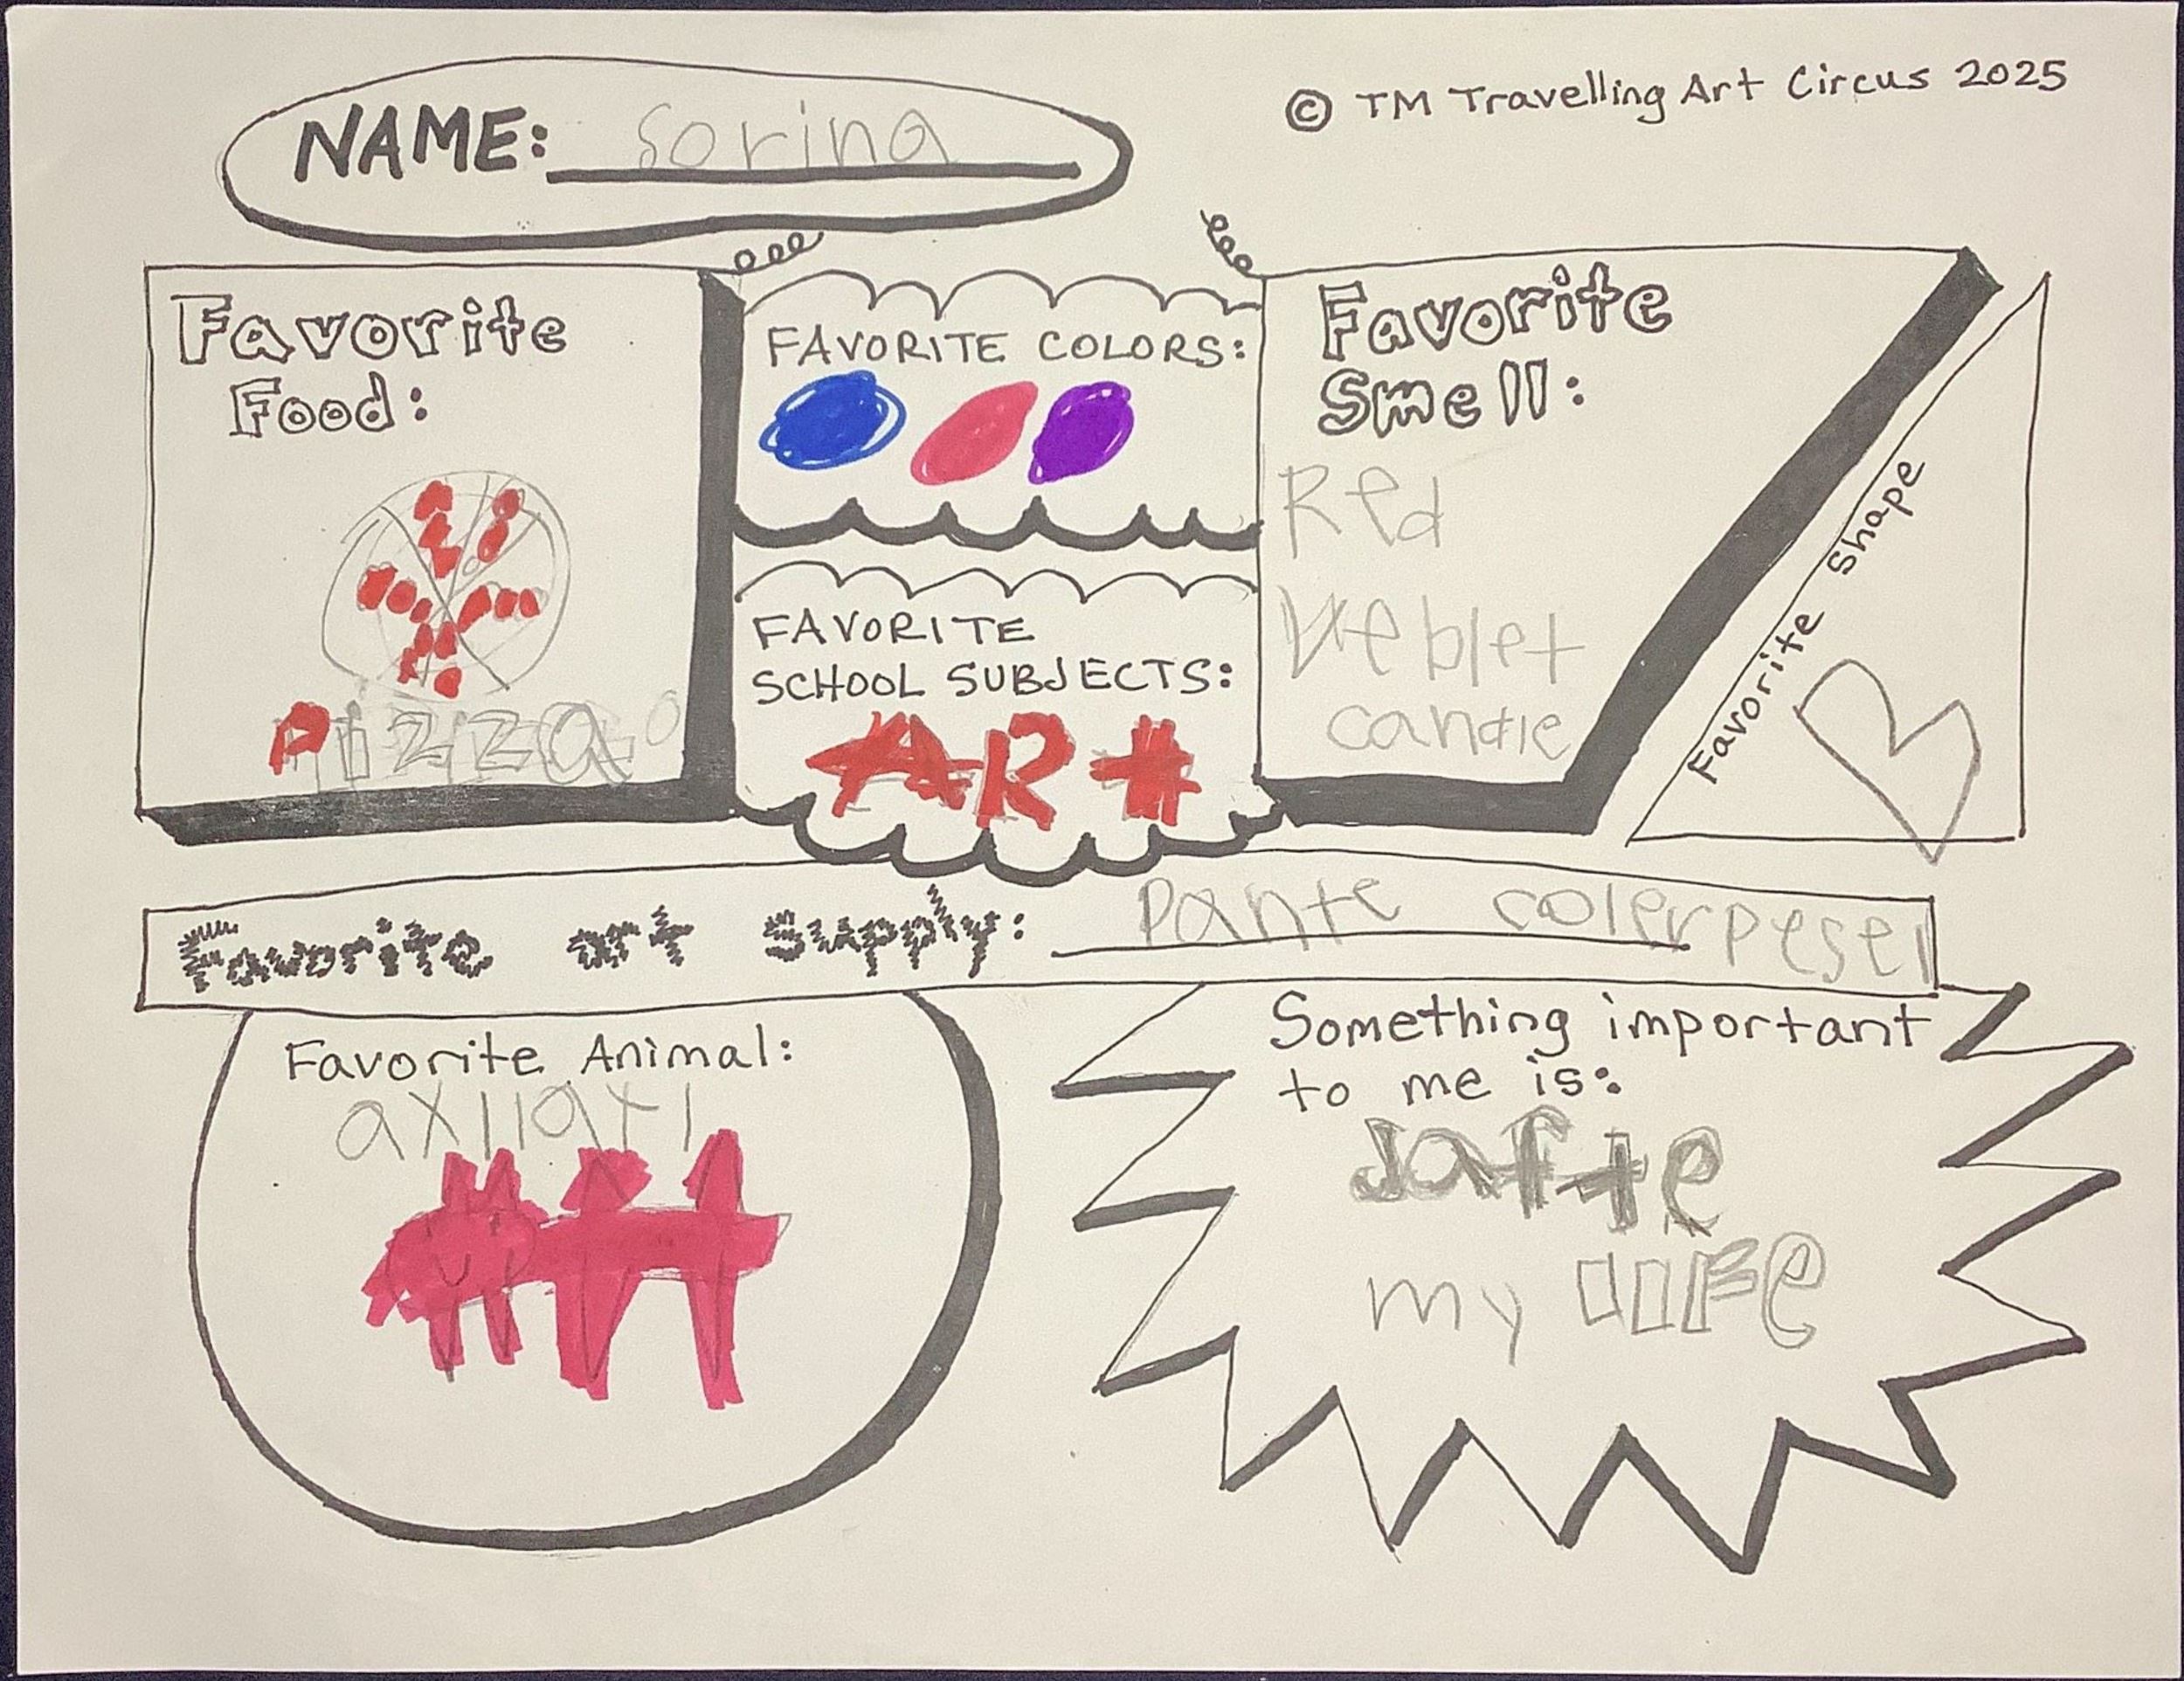 NAME: Sorina
© TM Travelling Art Circus 2025
Favorite
Food:
Pizza
FAVORITE COLORS:
FAVORITE
SCHOOL SUBJECTS:
ART
Favorite
Smell:
Red
Veblet
candle
Favorite Shape
Favorite art supply: pante colerpesel
Favorite Animal:
axllatl
Something important
to me is:
safte
my liFe